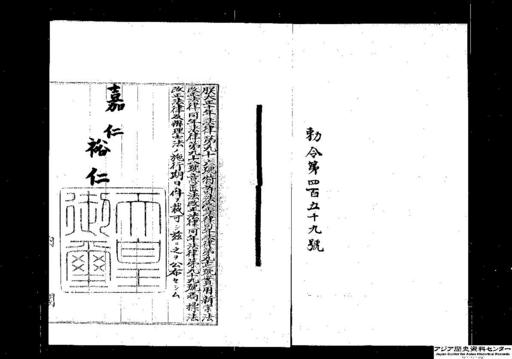 勅令第四百五十九號
朕大正十年法律第九十六號特許法改正法律同年法律第九十七號實用新案法
改正法律同年法律第九十八號意匠法改正法律同年法律第九十九號商標法
改正法律及辨理士法ノ施行期日ノ件ヲ裁可シ茲ニ之ヲ公布セシム
嘉仁
裕仁
天皇
御璽
内閣
アジア歴史資料センター
Japan Center for Asian Historical Records